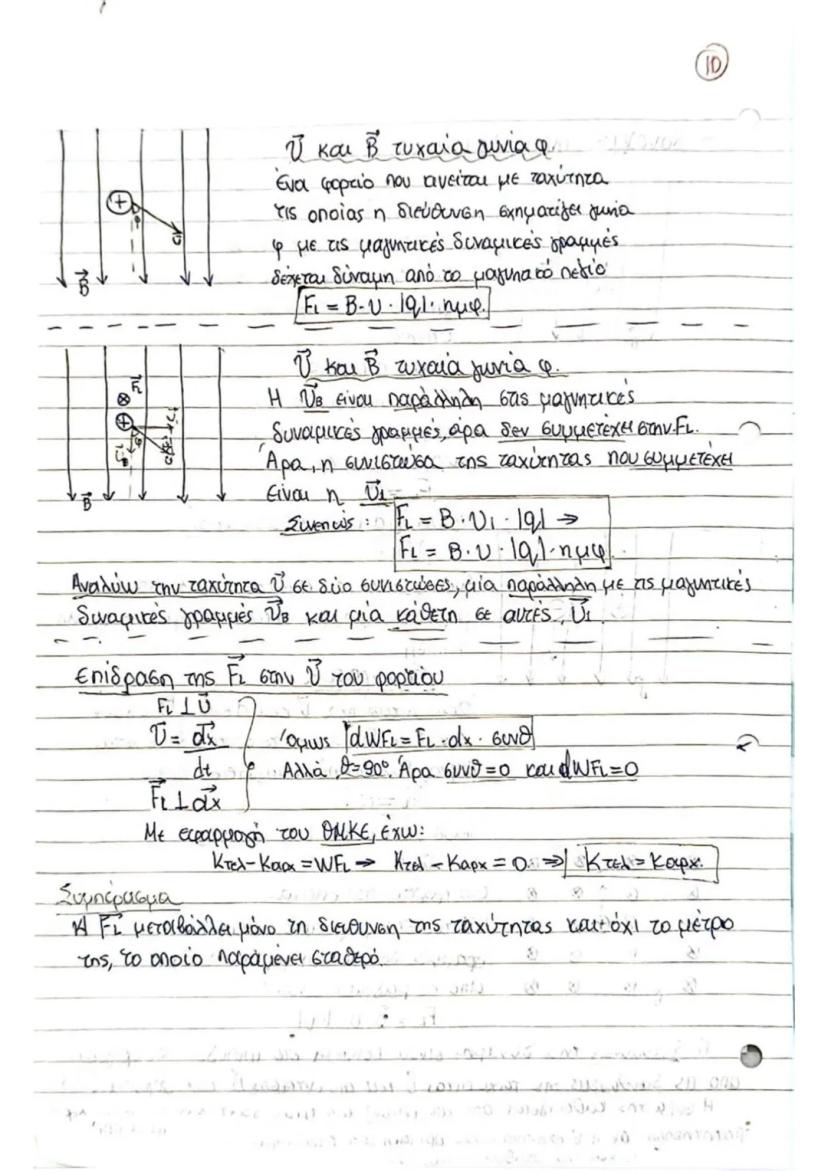 10
→υ και →Β τυχαία γωνία φ
Ένα φορτίο που κινείται με ταχύτητα
τις οποίας η διεύθυνση σχηματίζει γωνία
φ με τις μαγνητικές δυναμικές γραμμές
δέχεται δύναμη από το μαγνητικό πεδίο
FL = B·υ·|q|·ημφ.
→B
→υ και →Β τυχαία γωνία φ.
Η →υB είναι παράλληλη στις μαγνητικές
δυναμικές γραμμές, άρα δεν συμμετέχει στην FL.
Άρα, η συνιστώσα της ταχύτητας που συμμετέχει
είναι η →υ⊥
Συνεπώς: FL = B·υ⊥·|q| ⇒
FL = B·υ·|q|·ημφ
→B
Αναλύω την ταχύτητα →υ σε δύο συνιστώσες, μία παράλληλη με τις μαγνητικές
δυναμικές γραμμές →υB και μία κάθετη σε αυτές, →υ⊥
Επίδραση της →FL στην →υ του φορτίου
FL ⊥ →υ
→υ = →dx / dt Όμως dWFL = FL·dx·συνθ
Αλλά, θ=90°. Άρα συνθ=0 και dWFL=0
→FL ⊥ →dx
Με εφαρμογή του ΘΜΚΕ, έχω:
Κτελ-Καρχ = WFL ⇒ Κτελ - Καρχ = 0 ⇒ Κτελ = Καρχ.
Συμπέρασμα
Η →FL μεταβάλλει μόνο τη διεύθυνση της ταχύτητας και όχι το μέτρο
της, το οποίο παραμένει σταθερό.